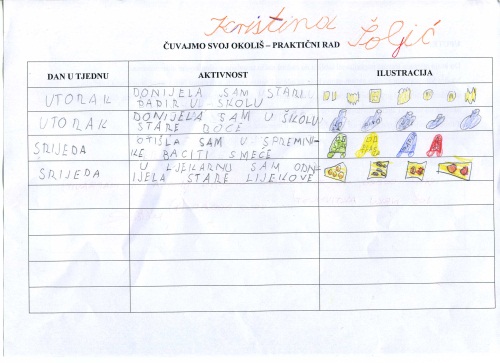 Kristina Šoljić
ČUVAJMO SVOJ OKOLIŠ – PRAKTIČNI RAD
DAN U TJEDNU AKTIVNOST ILUSTRACIJA
UTORAK DONIJELA SAM STARI
PAPIR U ŠKOLU
UTORAK DONIJELA SAM U ŠKOLU
STARE BOCE
SRIJEDA OTIŠLA SAM U SPREMNI-
KE BACITI SMEĆE
SRIJEDA U LJEKARNU SAM ODN-
IJELA STARE LIJEKOVE